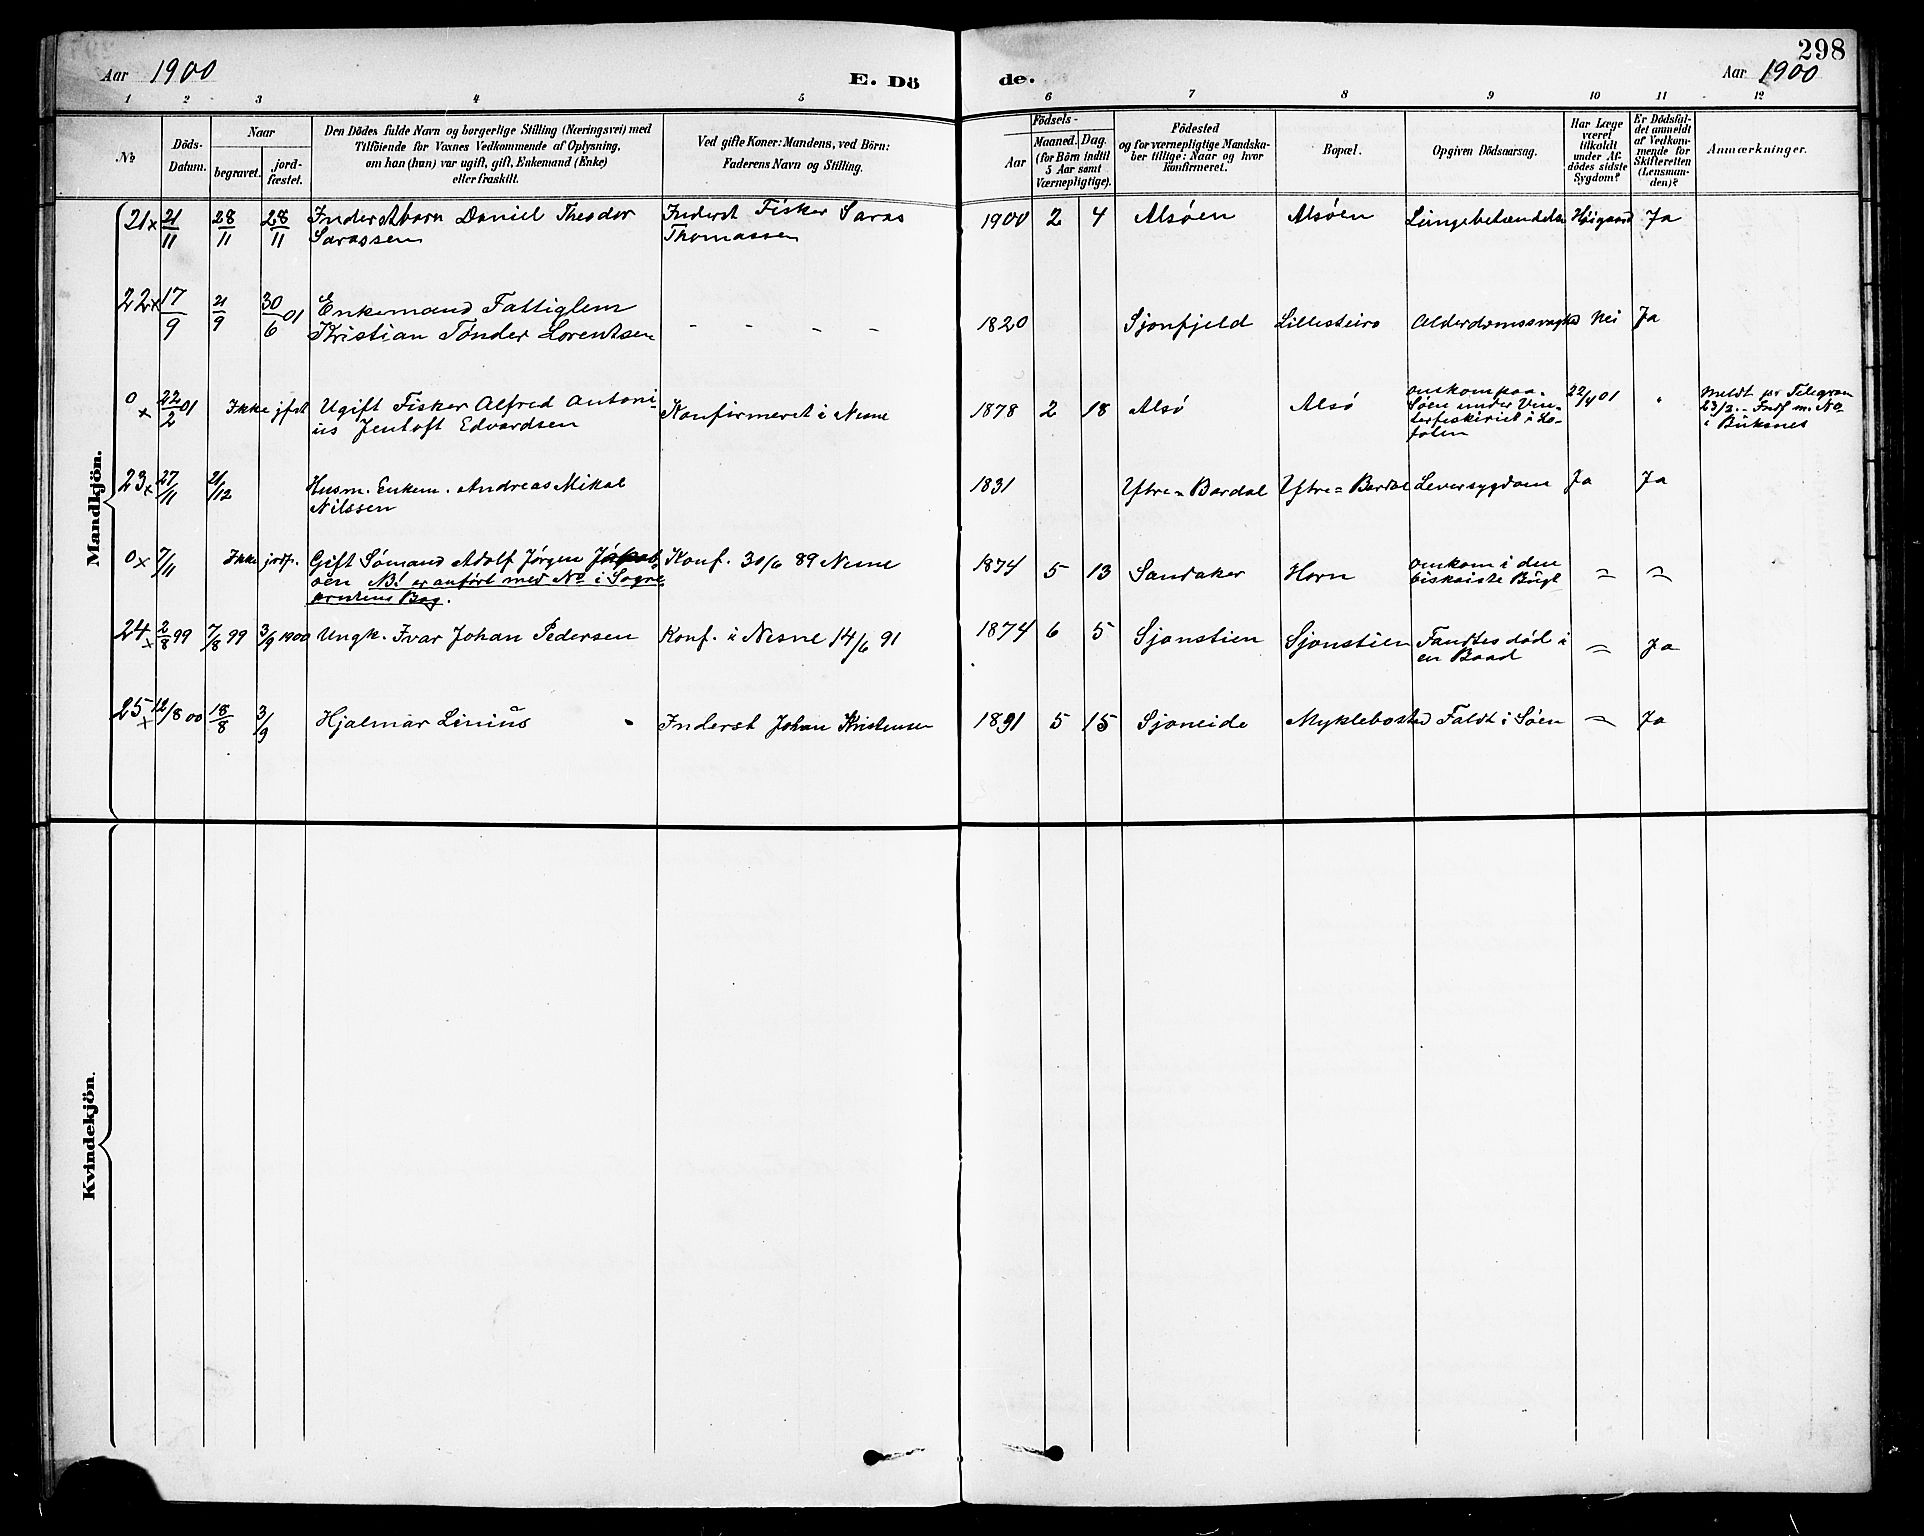 298
Aar 1900
E. Dö
de.
Aar 1900
1 2 3 4 5 6 7 8 9 10 11 12
No
Döds-
Datum.
Naar
begravet.
jord-
fæstet.
Den Dödes fulde Navn og borgerlige Stilling (Næringsvei) med
Tilföiende for Voxnes Vedkommende af Oplysning,
om han (hun) var ugift, gift, Enkemand (Enke)
eller fraskilt.
Ved gifte Koner: Mandens, ved Börn:
Faderens Navn og Stilling.
Födsels-
Aar
Maaned. Dag.
(for Börn indtil
5 Aar samt
Værnepligtige).
Födested
og for værnepligtige Mandska-
ber tillige: Naar og hvor
konfirmeret.
Bopæl.
Opgiven Dödsaarsag.
Har Læge
været
tilkaldt
under Af-
dödes sidste
Sygdom?
Er Dödsfal-
det anmeldt
af Vedkom-
mende for
Skifteretten
(Lensman-
den)?
Anmærkninger.
Mandkjön.
21 x 21/11 28/11 28/11 Inderstbarn Daniel Theodor
Sarassen
Inderst Fisker Saras
Thomassen
1900 2 4 Alsøen Alsøen Lungebetændelse Høigaard Ja
22 x 17/9 21/9 30/6 01 Enkemand Fattiglem
Kristian Tønder Lorentsen
- - - -
1820 Sjonfjeld Lillesteiro Alderdomssvaghd Nei Ja
0 x 22/2 01 Ikke jfst Ugift Fisker Alfred Antoni-
us Jentoft Edvardsen
Konfirmeret i Nesne
1878 2 18 Alsø Alsø
omkom paa
Søen under Vin-
terfiskeriet i Lo-
foten
22/4 01 "
Meldt pr Telegram
23/2. - Indf m. No
i Buksnes
23 x 27/11 21/12 Husm. Enkem. Andreas Mikal
Nilssen
1831 Yttre = Bardal Yttre = Bardal Leversygdom Ja Ja
0 x 7/11 Ikke jordf. Gift Sømand Adolf Jørgen Jakob
sen NB! er anført med No i Sogne
prestens Bog.
Konf. 30/6 89 Nesne
1874 5 13 Sandaker Horn omkom i den
biskaiske Bugt
24 x 2/8 99 7/8 99 3/9 1900 Ungk. Ivar Johan Pedersen
Konf. i Nesne 14/6 91
1874 6 5 Sjonstien Sjonstien Fandtes død i
en Baad
Ja
25 x 12/8 00 18/8 3/9 Hjalmar Linius
Inderst Johan Kristensen
1891 5 15 Sjoneide Myklebostad Faldt i Søen Ja
Kvindekjön.